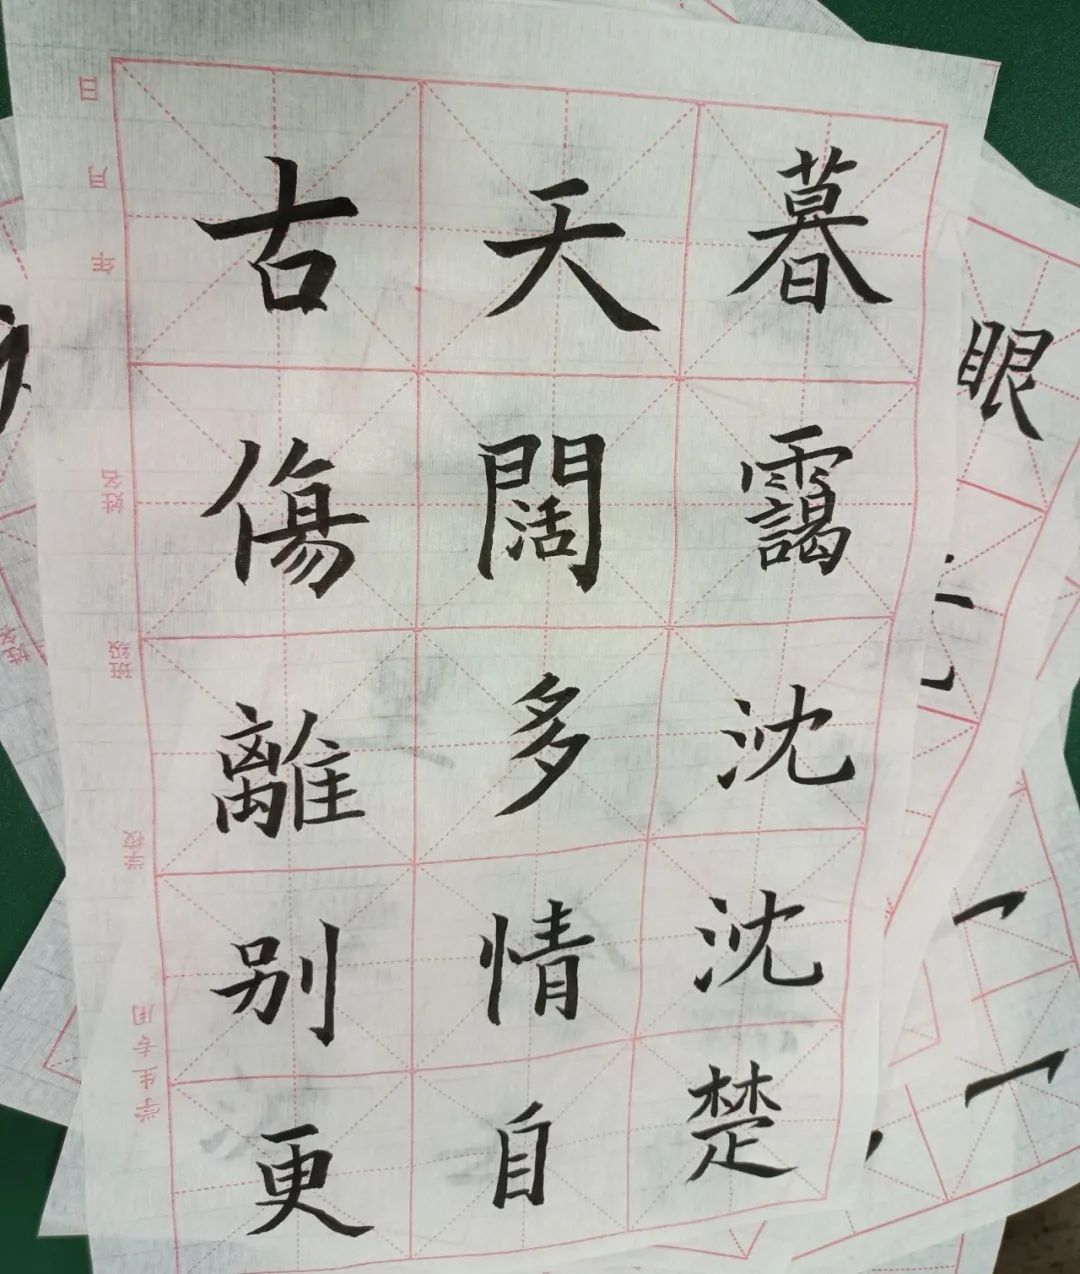 暮靄沈沈楚
天闊多情自
古傷離别更
眼
日
月
年
姓名
班級
学校
学生专用
姓名